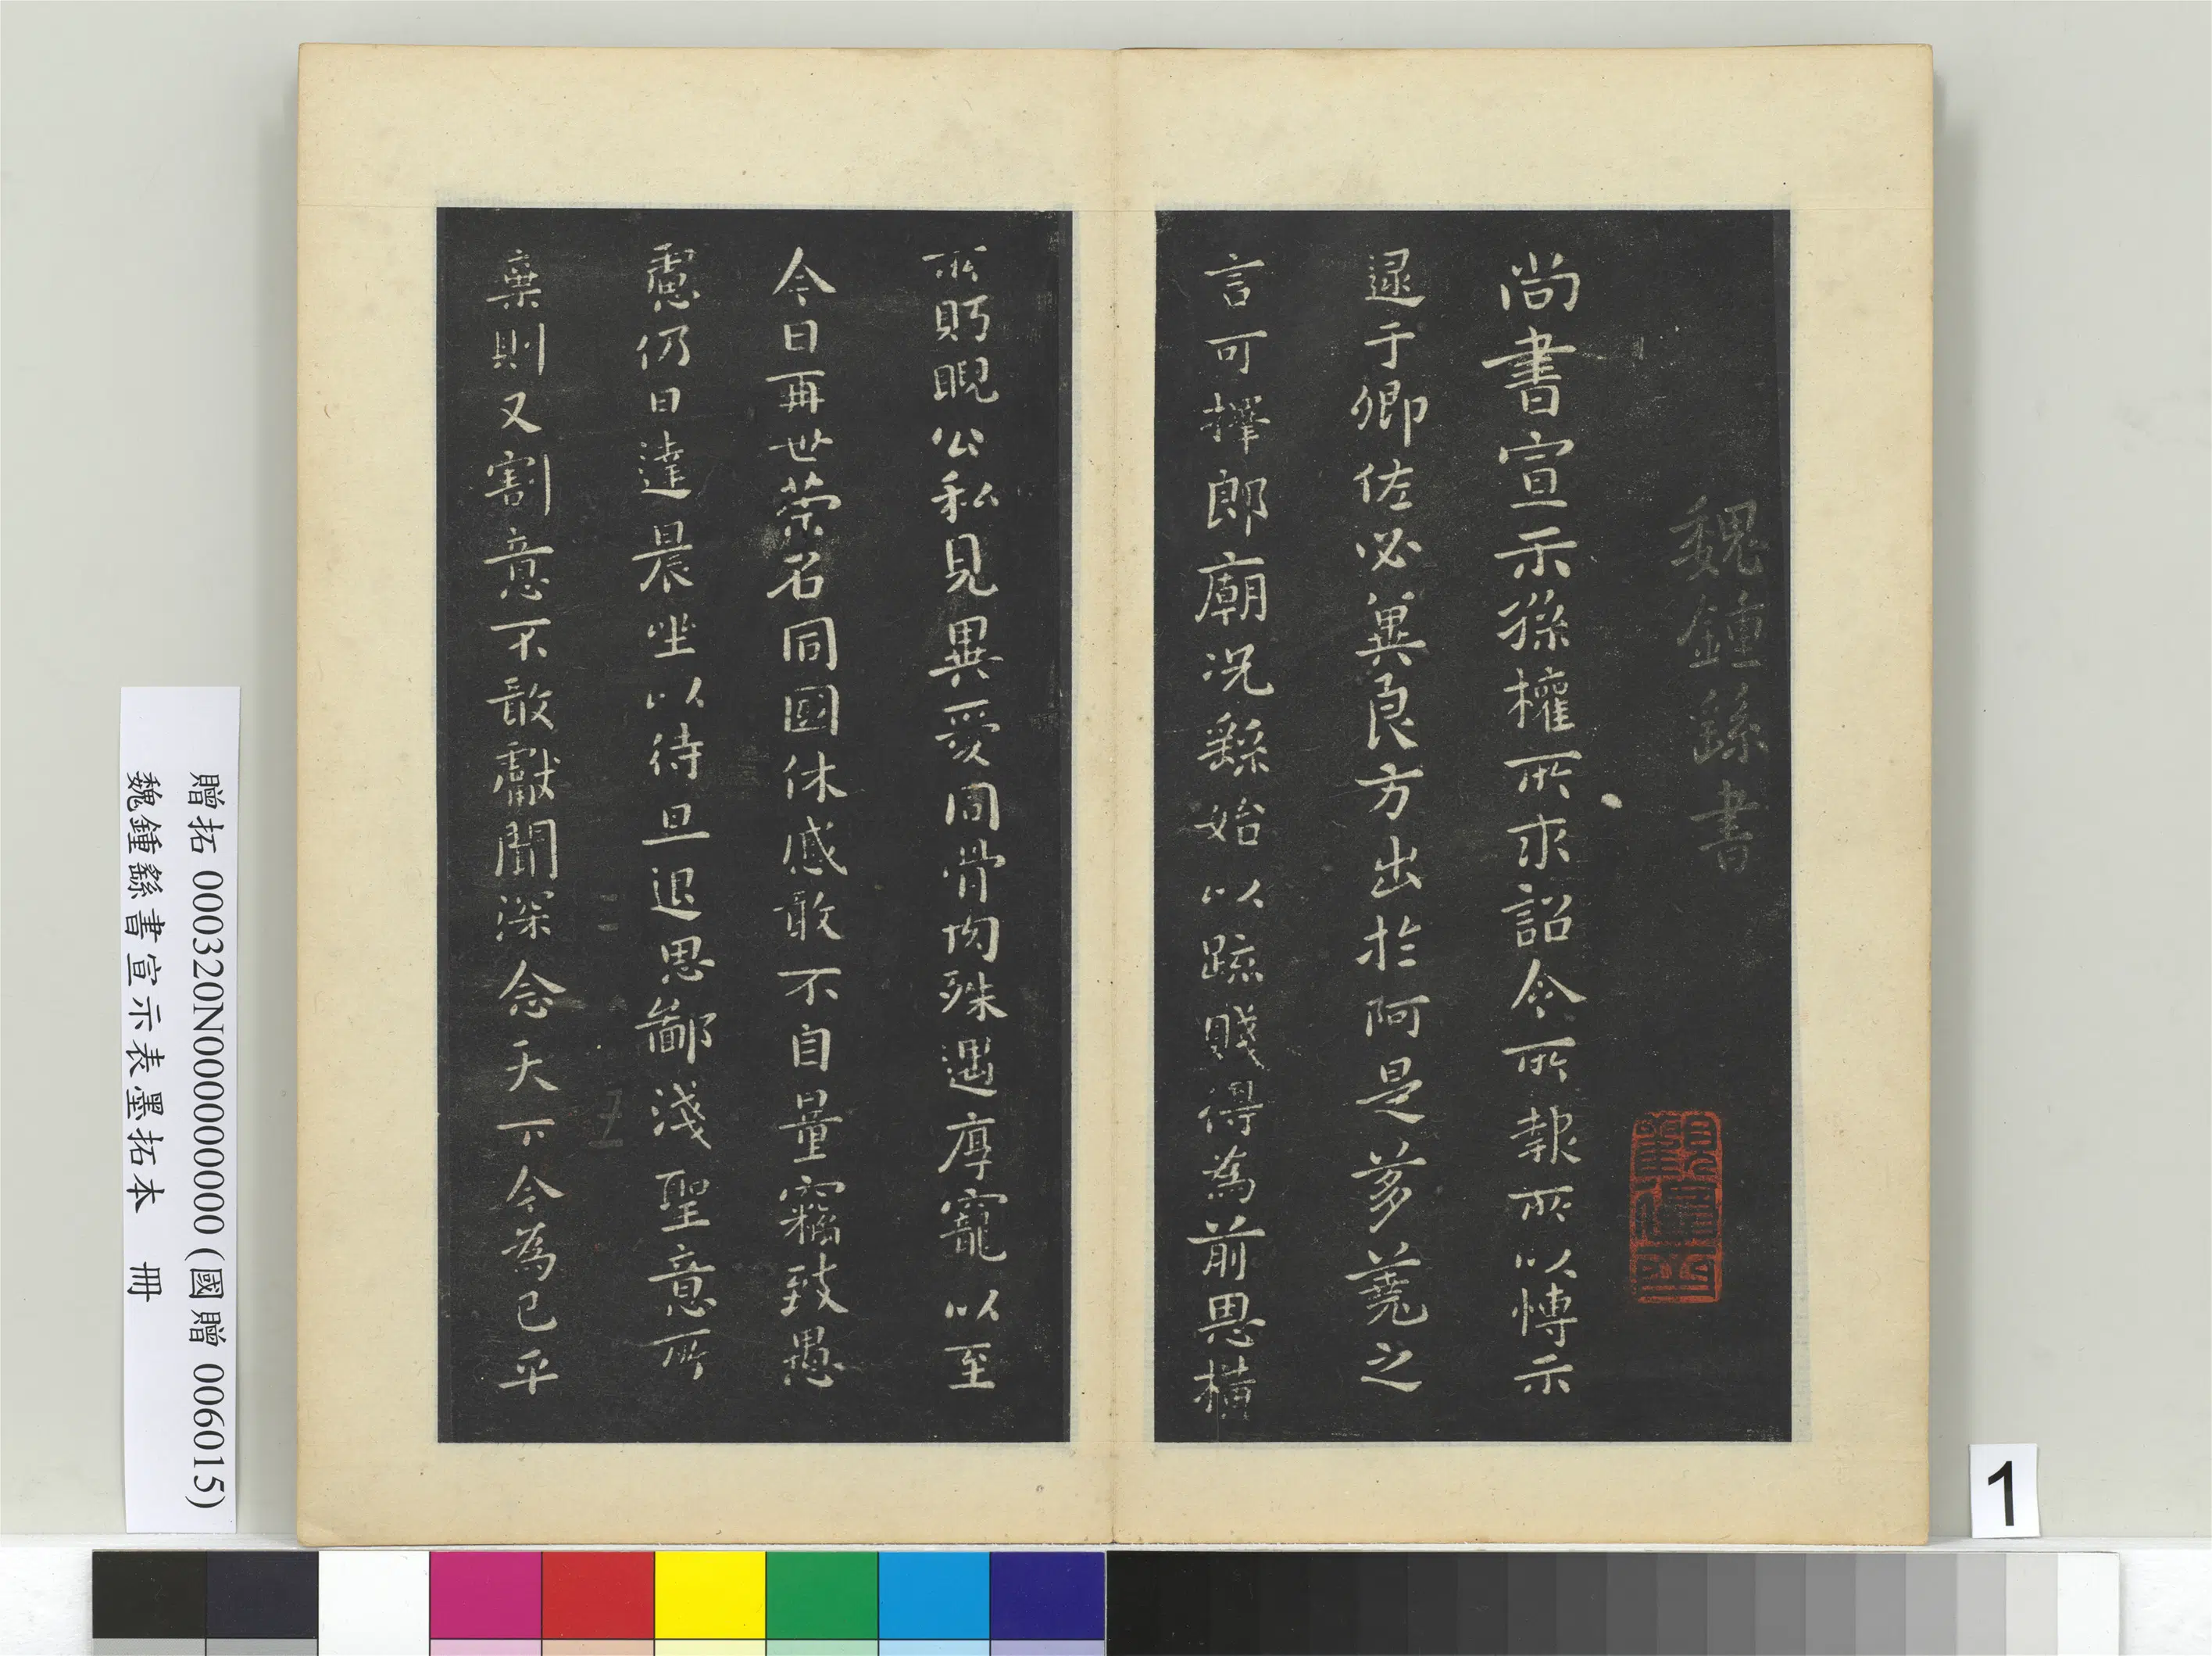 魏鍾繇書
尚書宣示孫權所求詔令所報所以博示
逮于卿佐必冀良方出於阿是芻蕘之
言可擇郎廟況繇始以疏賤得為前恩橫
所眄睨公私見異愛同骨肉殊遇厚寵以至
今日再世榮名同國休慼敢不自量竊致愚
慮仍日達晨坐以待旦退思鄙淺聖意所
棄則又割意不敢獻聞深念天下今為已平
贈拓 000320N000000000 (國贈 006015)
魏鍾繇書宣示表墨拓本 冊
1